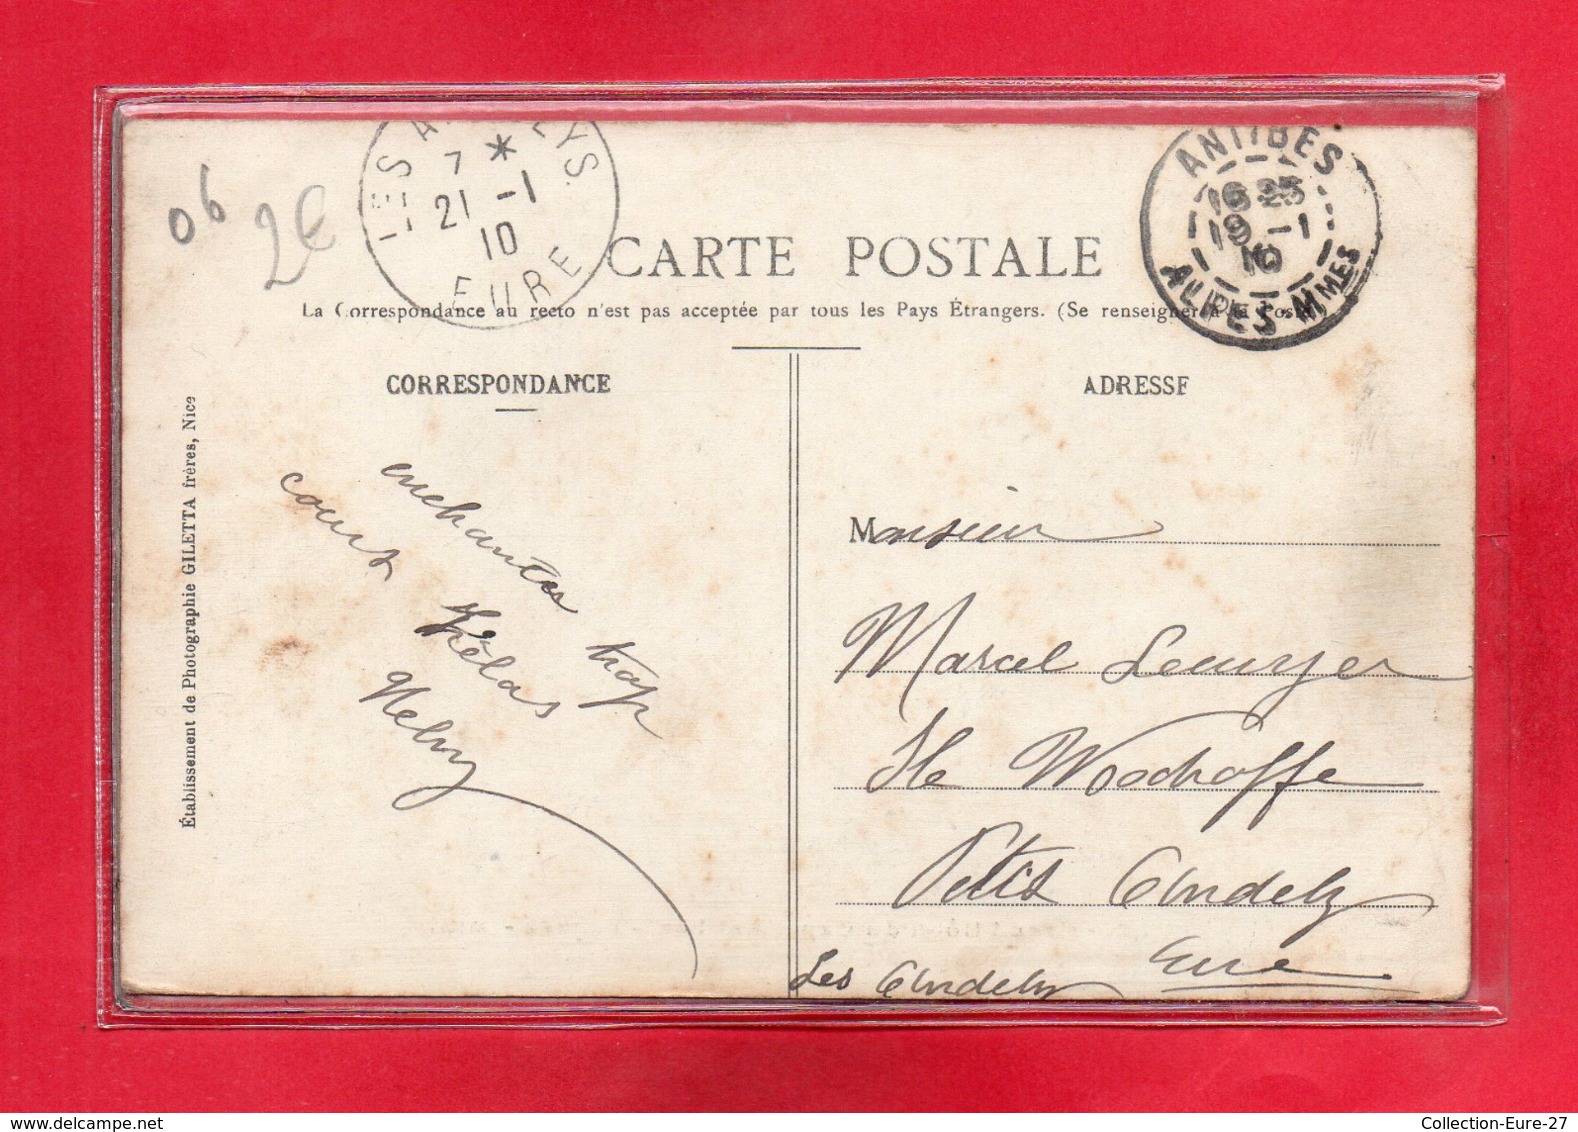 06
2€
LES ANDELYS
7 *
21 -1
10
EURE
ANTIBES
16 25
19 -1
10
ALPES-MMES
CARTE POSTALE
La Correspondance au recto n'est pas acceptée par tous les Pays Étrangers. (Se renseigner à la Poste
CORRESPONDANCE
ADRESSE
Établissement de Photographie GILETTA frères, Nice
enchantés trop
court hélas
Monsieur
Marcel Lecuyer
Ile Woodroffe
Petit Andely
Eure
Les Andelys
Collection-Eure-27